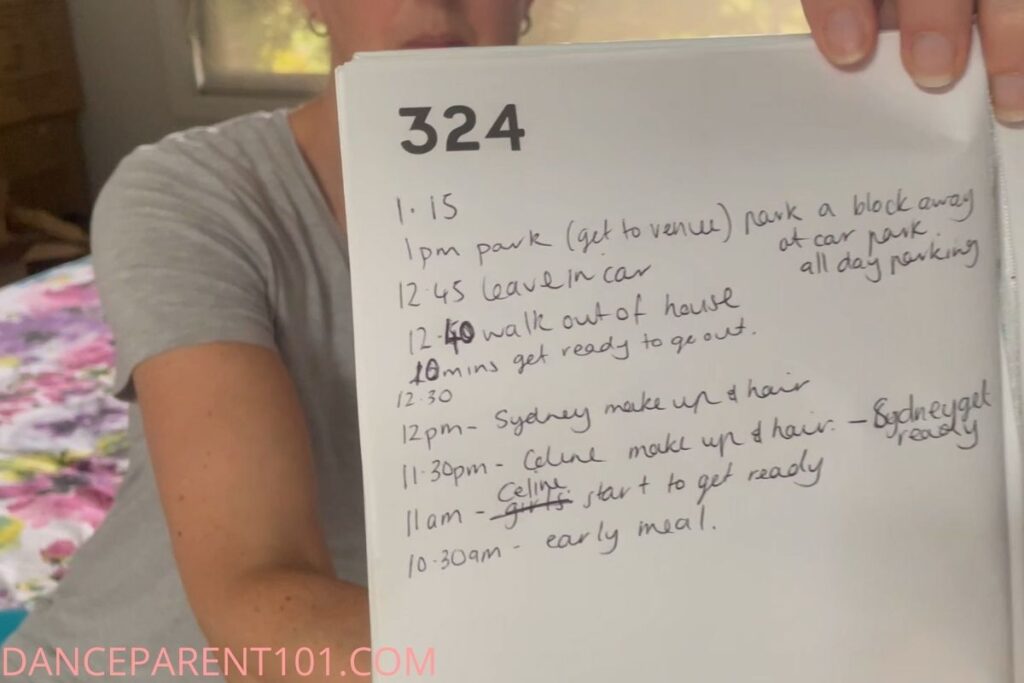 324
1.15
1pm park (get to venue) park a block away
at car park.
all day parking
12.45 leave in car
12.40 walk out of house
10 mins get ready to go out.
12.30
12pm - Sydney make up & hair
11.30pm - Celine make up & hair. - Sydney get
ready
Celine
11am - girls start to get ready
10.30am - early meal.
DANCEPARENT101.COM